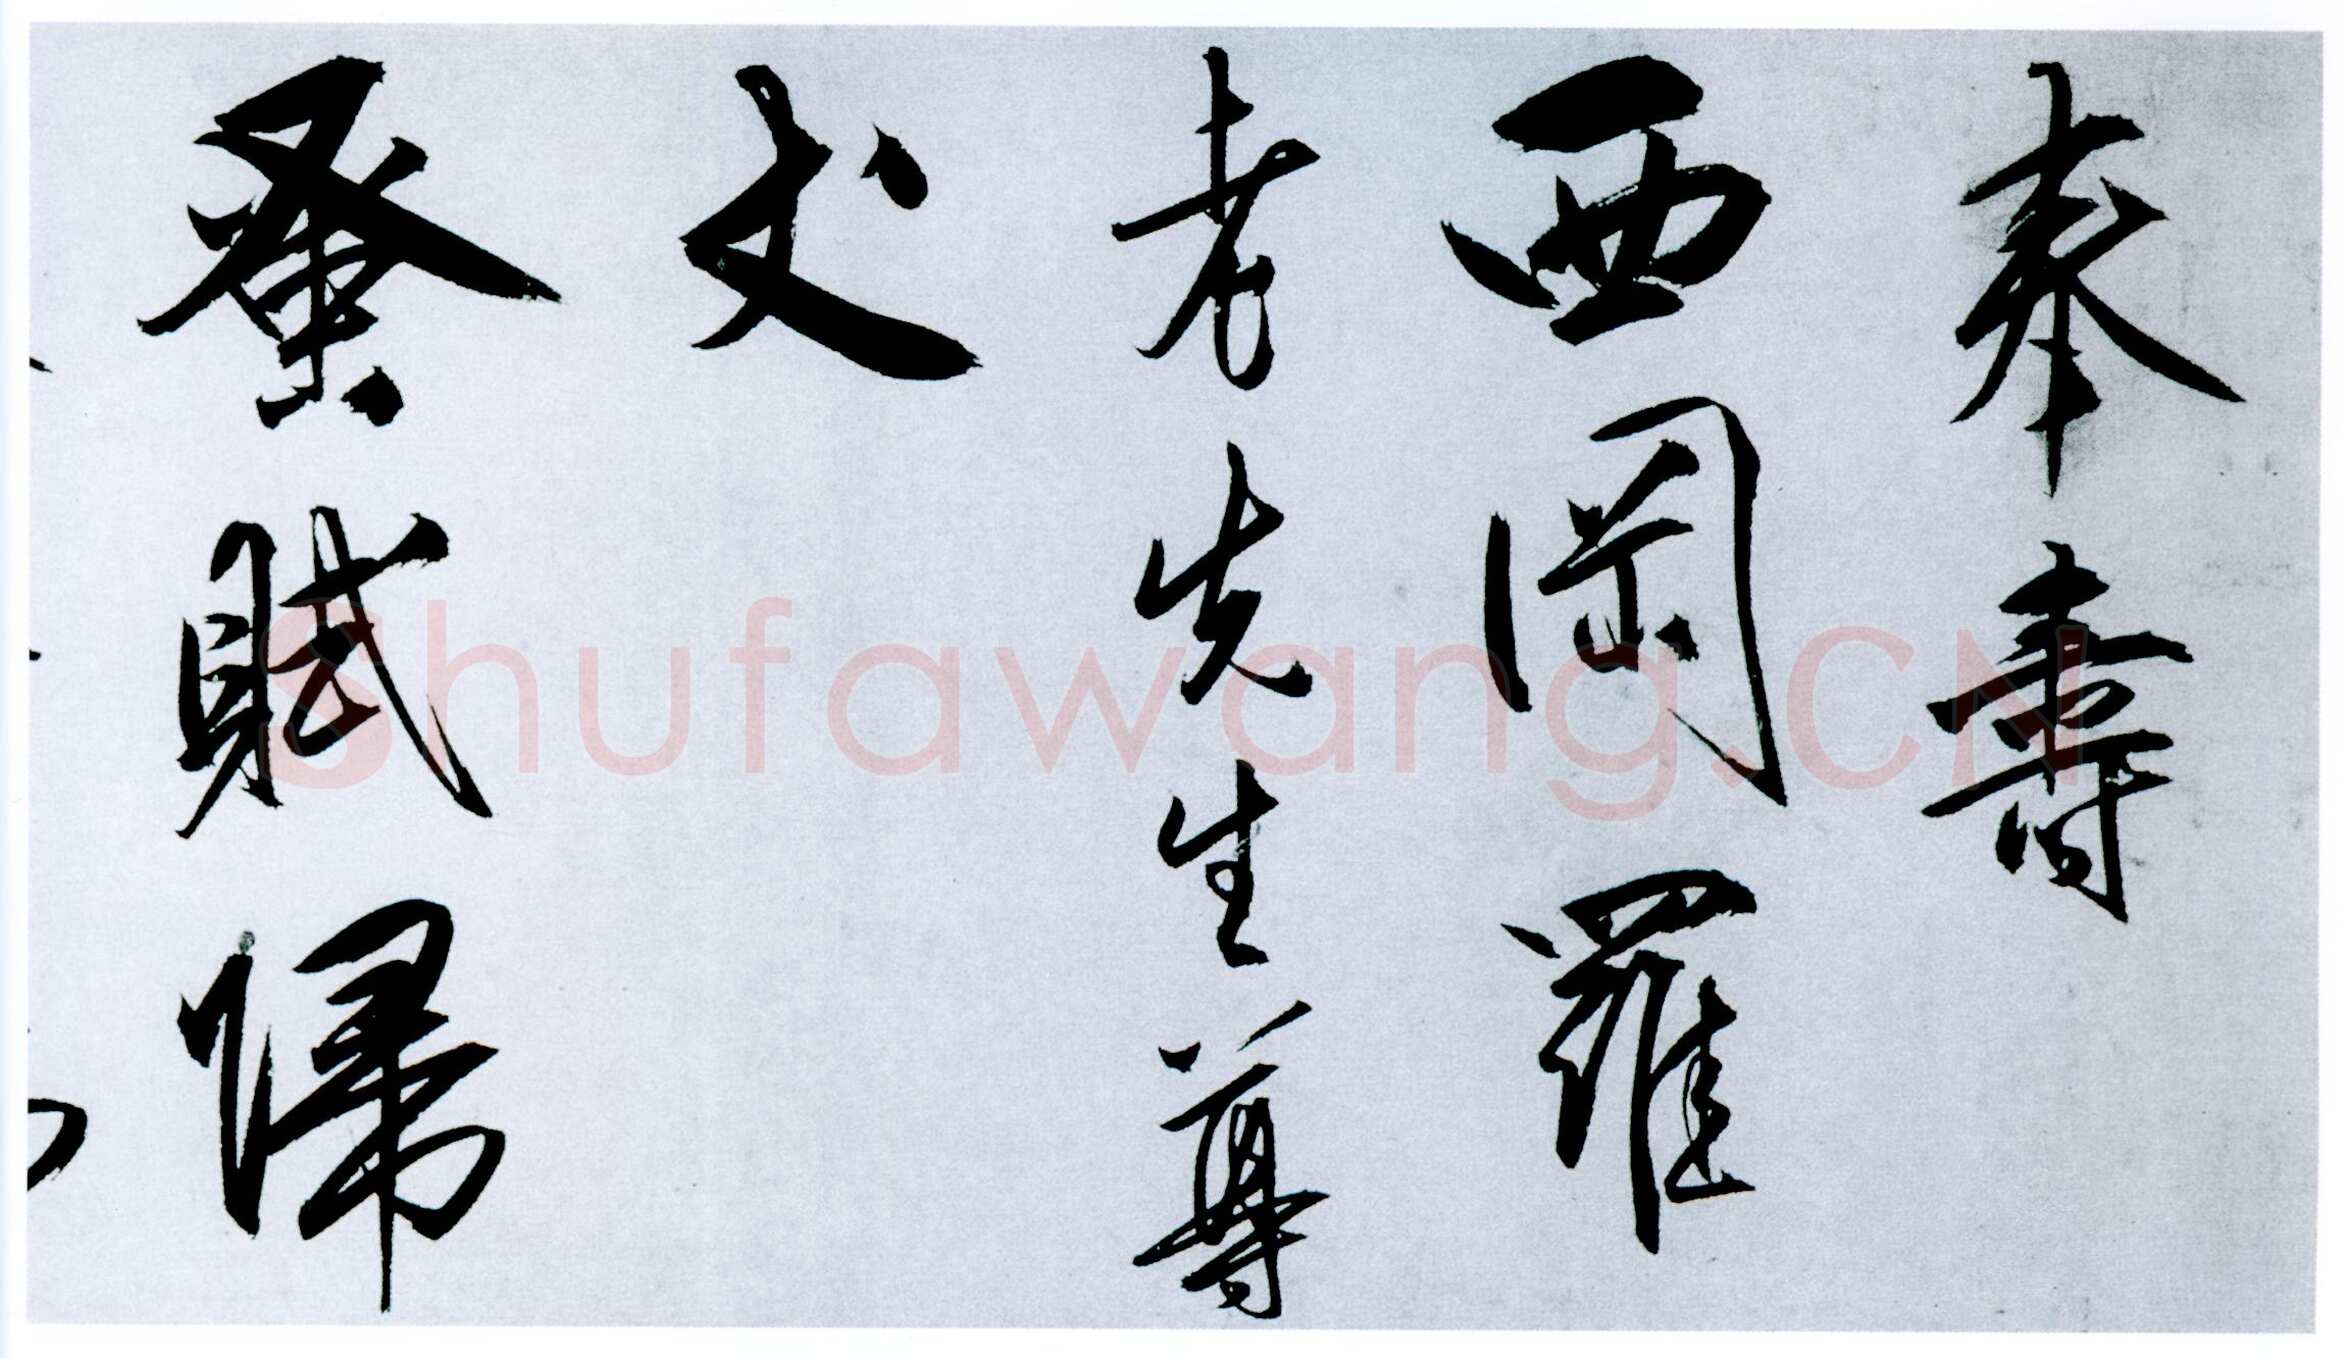 奉壽
西岡羅
老先生尊
丈
蚤賦歸
Shufawang.CN